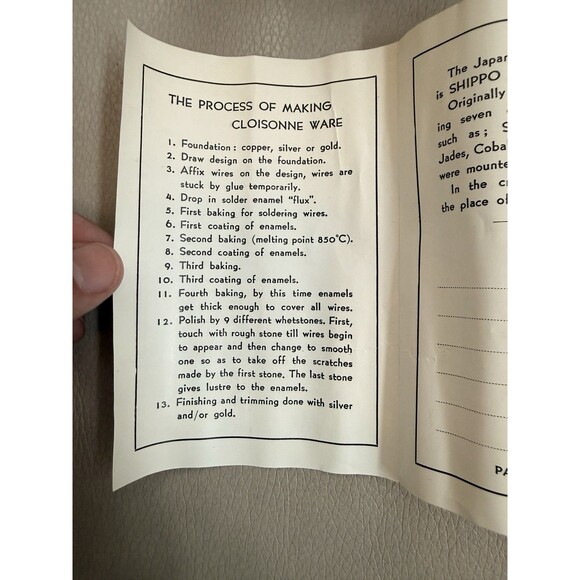 THE PROCESS OF MAKING
CLOISONNE WARE
1. Foundation: copper, silver or gold.
2. Draw design on the foundation.
3. Affix wires on the design, wires are
stuck by glue temporarily.
4. Drop in solder enamel "flux".
5. First baking for soldering wires.
6. First coating of enamels.
7. Second baking (melting point 850°C).
8. Second coating of enamels.
9. Third baking.
10. Third coating of enamels.
11. Fourth baking, by this time enamels
get thick enough to cover all wires.
12. Polish by 9 different whetstones. First,
touch with rough stone till wires begin
to appear and then change to smooth
one so as to take off the scratches
made by the first stone. The last stone
gives lustre to the enamels.
13. Finishing and trimming done with silver
and/or gold.
The Japan
is SHIPPO
Originally
ing seven
such as;
Jades, Coba
were mounte
In the
the place of